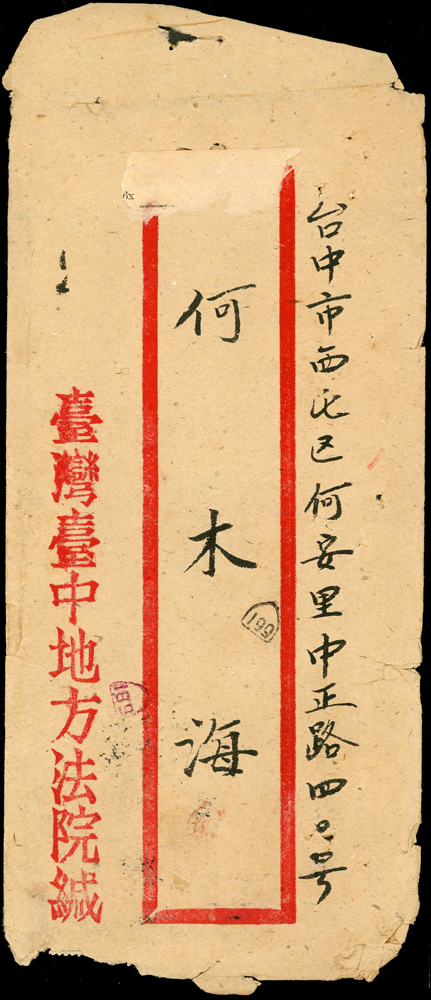 台中市西屯区何安里中正路四〇号
何木海
臺灣臺中地方法院緘
199